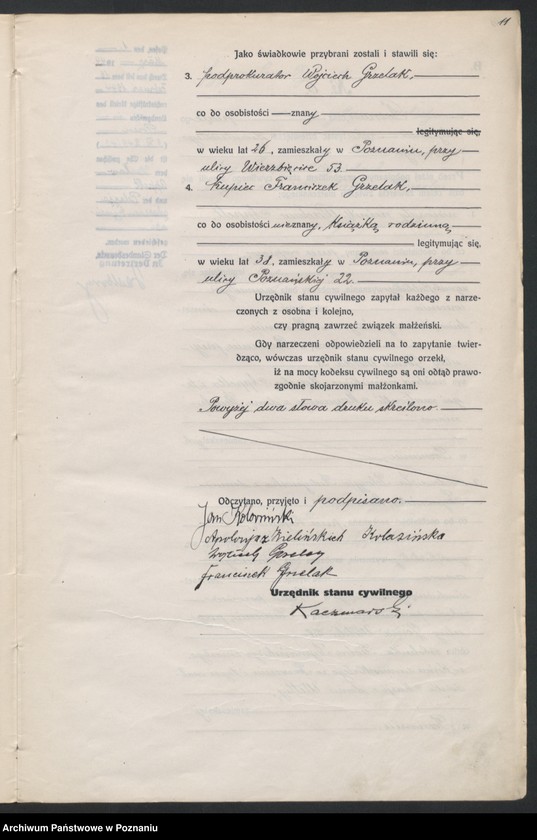 11
Jako świadkowie przybrani zostali i stawili się:
3. podprokurator Wojciech Grzelak,
co do osobistości znany
legitymując się,
w wieku lat 26, zamieszkały w Poznaniu, przy
ulicy Wierzbięcice 53.
4. kupiec Franciszek Grzelak,
co do osobistości nieznany, książką rodzinną
legitymując się,
w wieku lat 38, zamieszkały w Poznaniu, przy
ulicy Poznańskiej 22.
Urzędnik stanu cywilnego zapytał każdego z narze-
czonych z osobna i kolejno,
czy pragną zawrzeć związek małżeński.
Gdy narzeczeni odpowiedzieli na to zapytanie twier-
dząco, wówczas urzędnik stanu cywilnego orzekł,
iż na mocy kodeksu cywilnego są oni odtąd prawo-
zgodnie skojarzonymi małżonkami.
Powyżej dwa słowa druku skreślono.
Odczytano, przyjęto i podpisano.
Jan
Apolonja z Wielińskich Kolasińska
Wojciech Grzelak
Franciszek Grzelak
Urzędnik stanu cywilnego
Kaczmarski
Archiwum Państwowe w Poznaniu